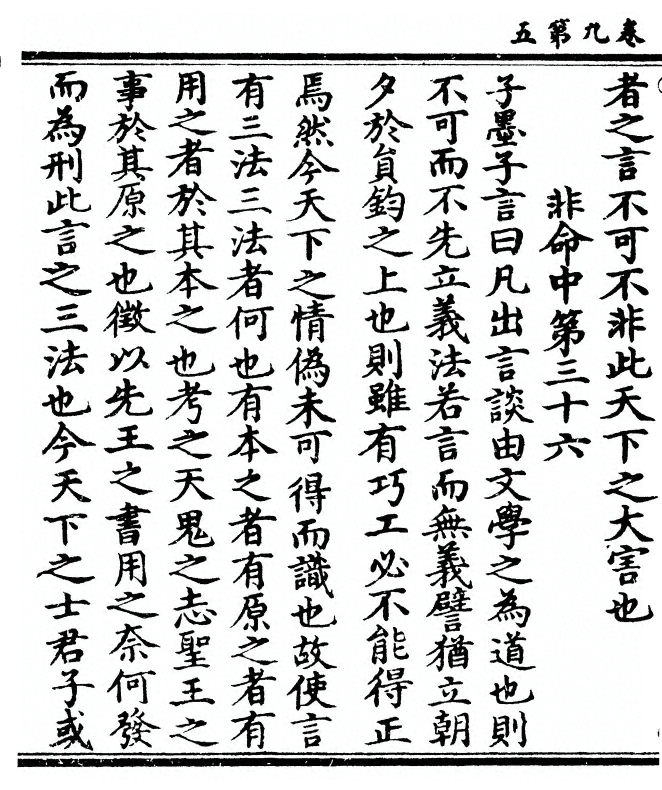 卷九第五
者之言不可不非此天下之大害也
非命中第三十六
子墨子言曰凡出言談由文學之為道也則
不可而不先立義法若言而無義譬猶立朝
夕於員鈞之上也則雖有巧工必不能得正
焉然今天下之情偽未可得而識也故使言
有三法三法者何也有本之者有原之者有
用之者於其本之也考之天鬼之志聖王之
事於其原之也徵以先王之書用之奈何發
而為刑此言之三法也今天下之士君子或